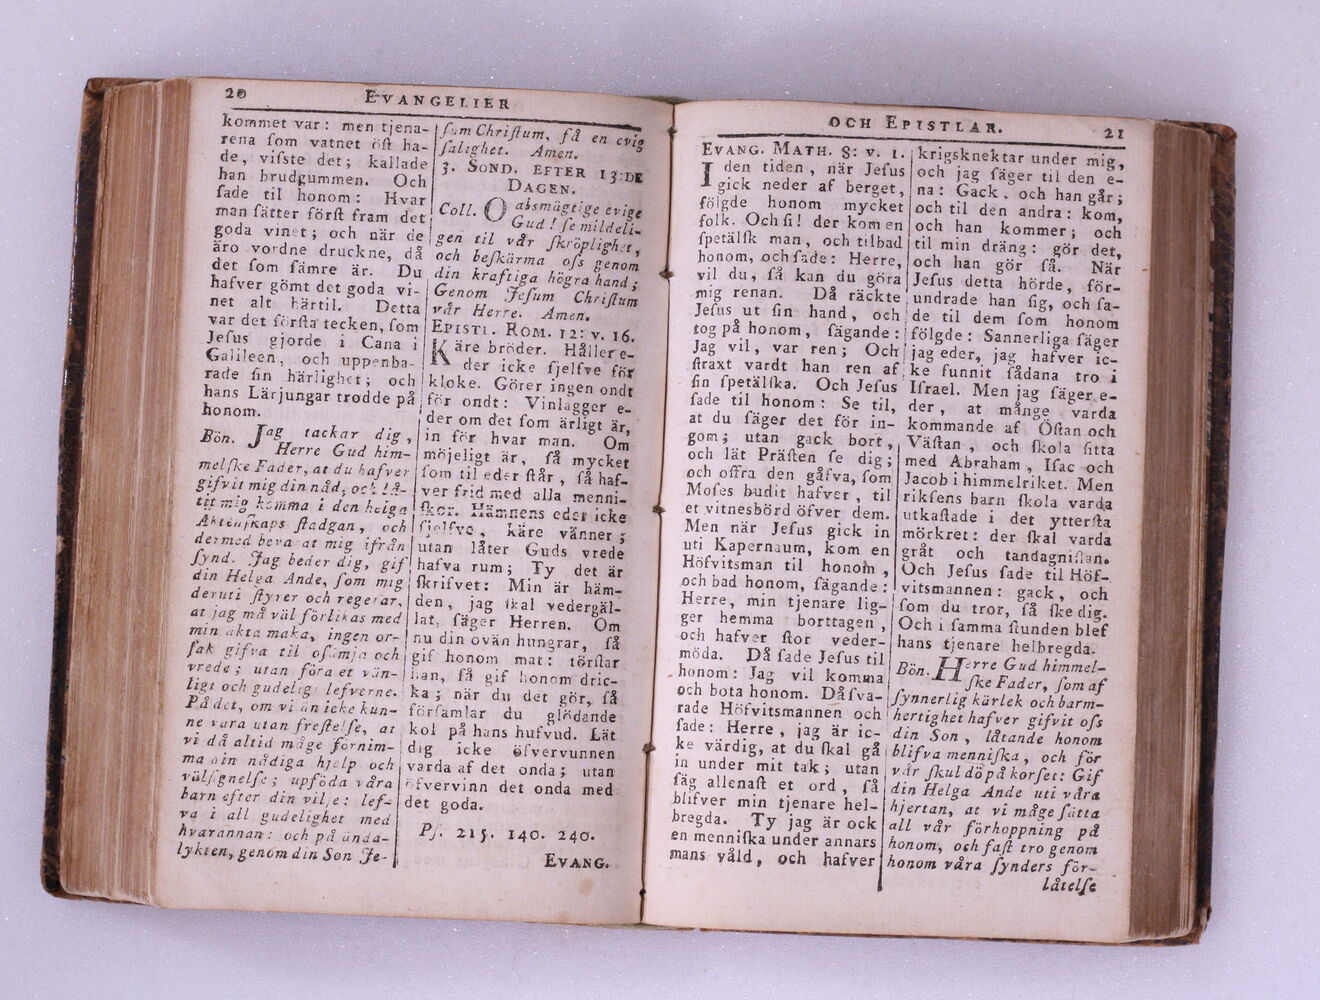 20
EVANGELIER
kommet var: men tjena-
rena ſom vatnet öſt ha-
de, viſste det; kallade
han brudgummen. Och
ſade til honom: Hvar
man ſätter förſt fram det
goda vinet; och när de
äro vordne druckne, då
det ſom ſämre är. Du
hafver gömt det goda vi-
net alt härtil. Detta
var det förſta tecken, ſom
Jeſus gjorde i Cana i
Galileen, och uppenba-
rade ſin härlighet; och
hans Lärjungar trodde på
honom.
Bön. Jag tackar dig,
Herre Gud him-
melſke Fader, at du hafver
gifvit mig din nåd, och lå-
tit mig komma i den heliga
Äktenſkaps ſtadgan, och
dermed bevarat mig ifrån
ſynd. Jag beder dig, gif
din Helga Ande, ſom mig
deruti ſtyrer och regerar,
at jag må väl förlikas med
min äkta maka, ingen or-
ſak gifva til oſämja och
vrede; utan föra et vän-
ligt och gudeligt lefverne.
På det, om vi än icke kun-
ne vara utan freſtelſe, at
vi då altid måge förnim-
ma din nådiga hjelp och
välſignelſe; upföda våra
barn efter din vilje: lef-
va i all gudelighet med
hvarannan: och på ända-
lykten, genom din Son Je-
ſum Chriſtum, få en evig
ſalighet. Amen.
3. SOND. EFTER 13:DE
DAGEN.
Coll. O alsmägtige evige
Gud! ſe mildeli-
gen til vår ſkröplighet,
och beſkärma oſs genom
din kraftiga högra hand;
Genom Jeſum Chriſtum
vår Herre. Amen.
EPISTL. ROM. 12: v. 16.
Käre bröder. Håller e-
der icke ſjelfve för
kloke. Görer ingen ondt
för ondt: Vinlägger e-
der om det ſom ärligt är,
in för hvar man. Om
möjeligt är, ſå mycket
ſom til eder ſtår, ſå haf-
ver frid med alla menni-
ſkor. Hämnens eder icke
ſjelfve, käre vänner;
utan låter Guds vrede
hafva rum; Ty det är
ſkrifvet: Min är häm-
den, jag ſkal vedergäl-
lat, ſäger Herren. Om
nu din ovän hungrar, ſå
gif honom mat: törſtar
han, ſå gif honom dric-
ka; när du det gör, ſå
förſamlar du glödande
kol på hans hufvud. Lät
dig icke öfvervunnen
varda af det onda; utan
öfvervinn det onda med
det goda.
Pſ. 215. 140. 240.
EVANG.
OCH EPISTLAR.
21
EVANG. MATH. 8: v. 1.
I den tiden, när Jeſus
gick neder af berget,
fölgde honom mycket
folk. Och ſi! der kom en
ſpetälſk man, och tilbad
honom, och ſade: Herre,
vil du, ſå kan du göra
mig renan. Då räckte
Jeſus ut ſin hand, och
tog på honom, ſägande:
Jag vil, var ren; Och
ſtraxt vardt han ren af
ſin ſpetälſka. Och Jeſus
ſade til honom: Se til,
at du ſäger det för in-
gom; utan gack bort,
och lät Präſten ſe dig;
och offra den gåfva, ſom
Moſes budit hafver, til
et vitnesbörd öfver dem.
Men när Jeſus gick in
uti Kapernaum, kom en
Höfvitsman til honom,
och bad honom, ſägande:
Herre, min tjenare lig-
ger hemma borttagen,
och hafver ſtor veder-
möda. Då ſade Jeſus til
honom: Jag vil komma
och bota honom. Då ſva-
rade Höfvitsmannen och
ſade: Herre, jag är ic-
ke värdig, at du ſkal gå
in under mit tak; utan
ſäg allenaſt et ord, ſå
blifver min tjenare hel-
bregda. Ty jag är ock
en menniſka under annars
mans våld, och hafver
krigsknektar under mig,
och jag ſäger til den e-
na: Gack, och han går;
och til den andra: kom,
och han kommer; och
til min dräng: gör det,
och han gör ſå. När
Jeſus detta hörde, för-
undrade han ſig, och ſa-
de til dem ſom honom
fölgde: Sannerliga ſäger
jag eder, jag hafver ic-
ke funnit ſådana tro i
Iſrael. Men jag ſäger e-
der, at månge varda
kommande af Öſtan och
Väſtan, och ſkola ſitta
med Abraham, Iſac och
Jacob i himmelriket. Men
rikſens barn ſkola varda
utkaſtade i det ytterſta
mörkret: der ſkal varda
gråt och tandagniſlan.
Och Jeſus ſade til Höf-
vitsmannen: gack, och
ſom du tror, ſå ſke dig.
Och i ſamma ſtunden blef
hans tjenare helbregda.
Bön. Herre Gud himmel-
ſke Fader, ſom af
ſynnerlig kärlek och barm-
hertighet hafver gifvit oſs
din Son, låtande honom
blifva menniſka, och för
vår ſkul dö på korſet: Gif
din Helga Ande uti våra
hjertan, at vi måge ſätta
all vår förhoppning på
honom, och faſt tro genom
honom våra ſynders för-
låtelſe